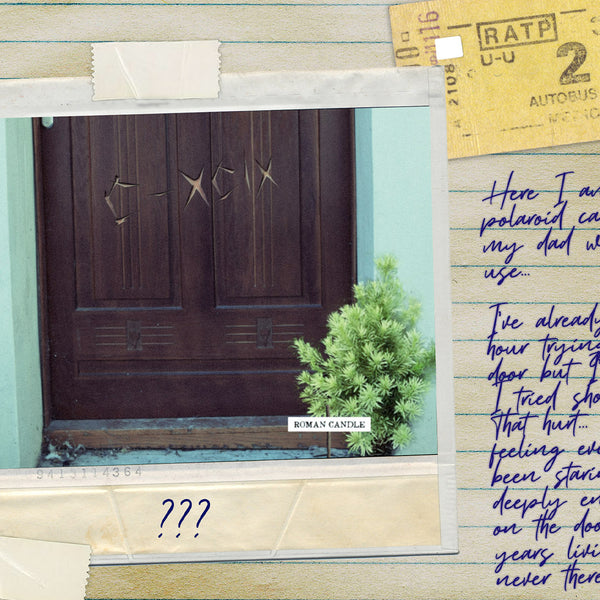 RATP
U-U
2
AUTOBUS
A 2108
G-XCIX
ROMAN CANDLE
9413114364
???
Here I am
polaroid ca
my dad w
use...
I've already
hour trying
door but I
I tried sho
That hurt...
feeling eve
been starin
deeply en
on the doo
years livi
never there